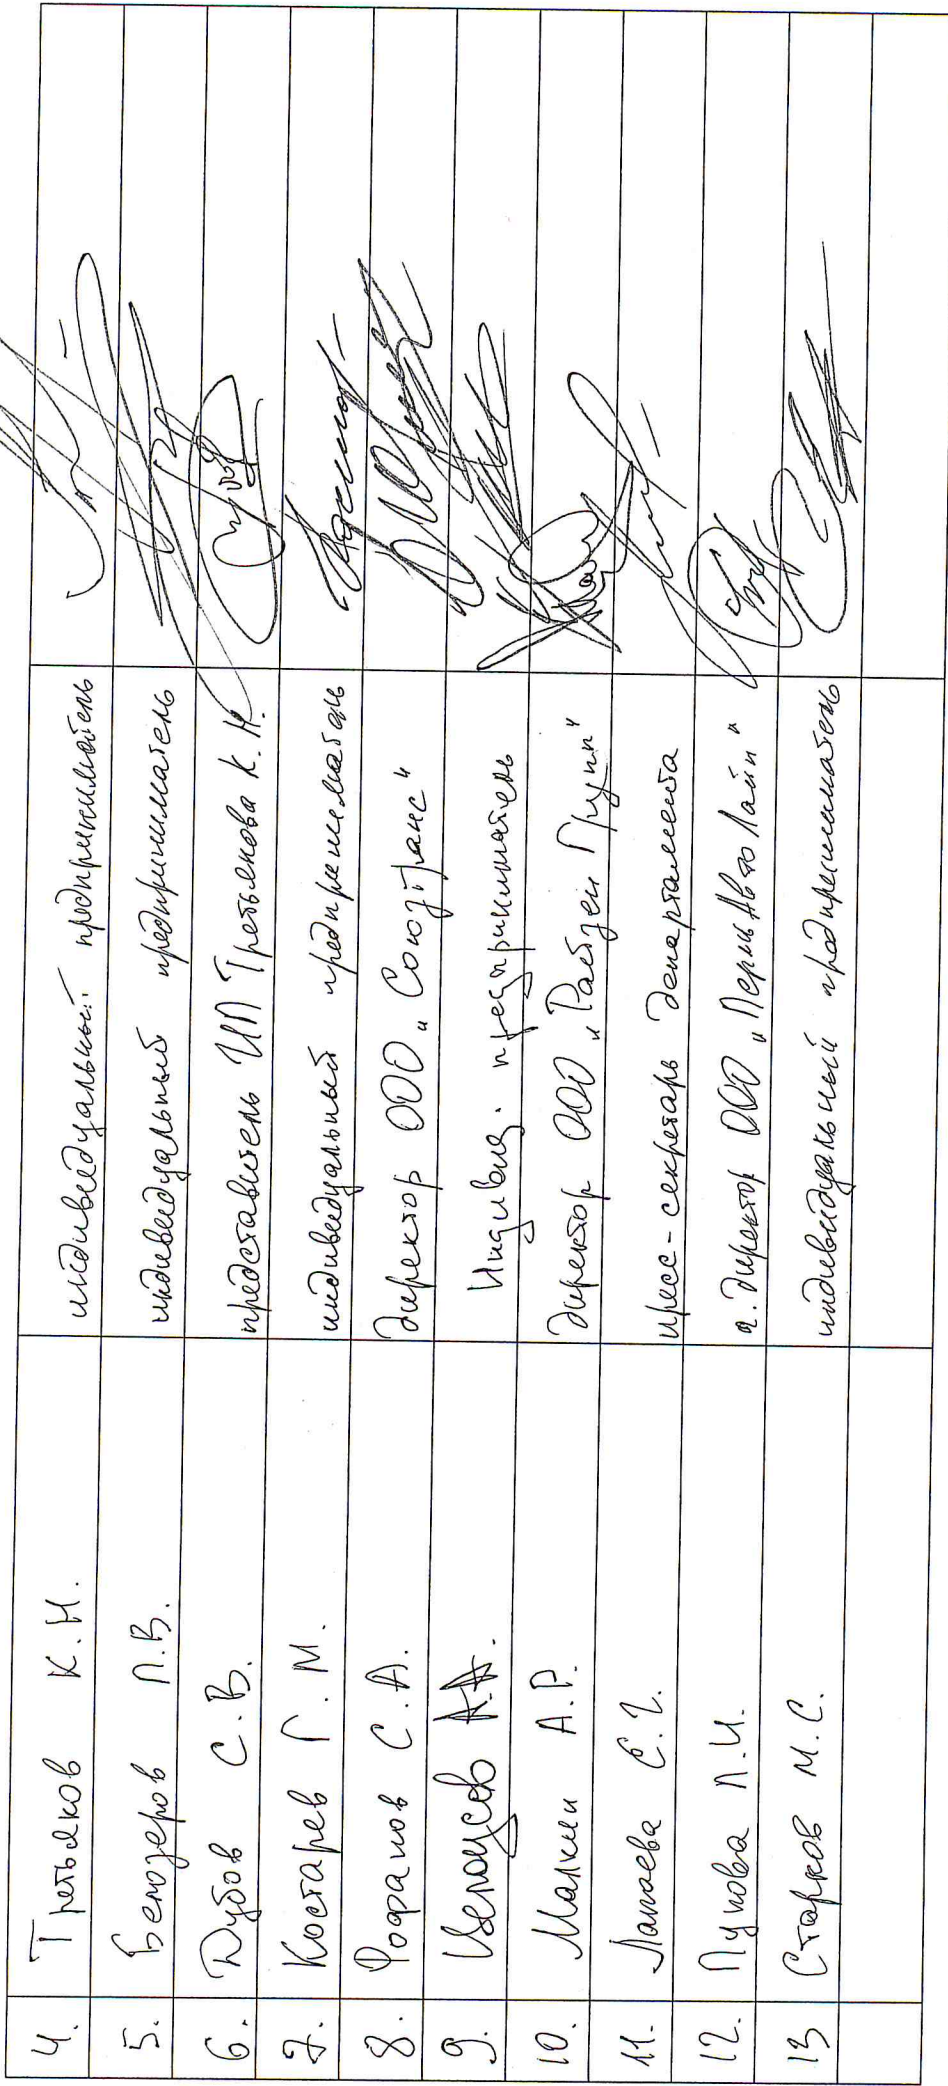 4. Третьяков К.Н. индивидуальный предприниматель
5. Белозеров П.В. индивидуальный предприниматель
6. Дубов С.В. представитель ИП Третьякова К.Н.
7. Костарев Г.М. индивидуальный предприниматель
8. Фофанов С.А. директор ООО „Союзтранс"
9. А.А. Индивид. предприниматель
10. Малкин А.Р. директор ООО „Райзен Групп"
11. Лапаева Е.Г. пресс-секретарь департамента
12. Пункова Л.И. г. директор ООО „ПермАвтоЛайн"
13 Старков М.С. индивидуальный предприниматель